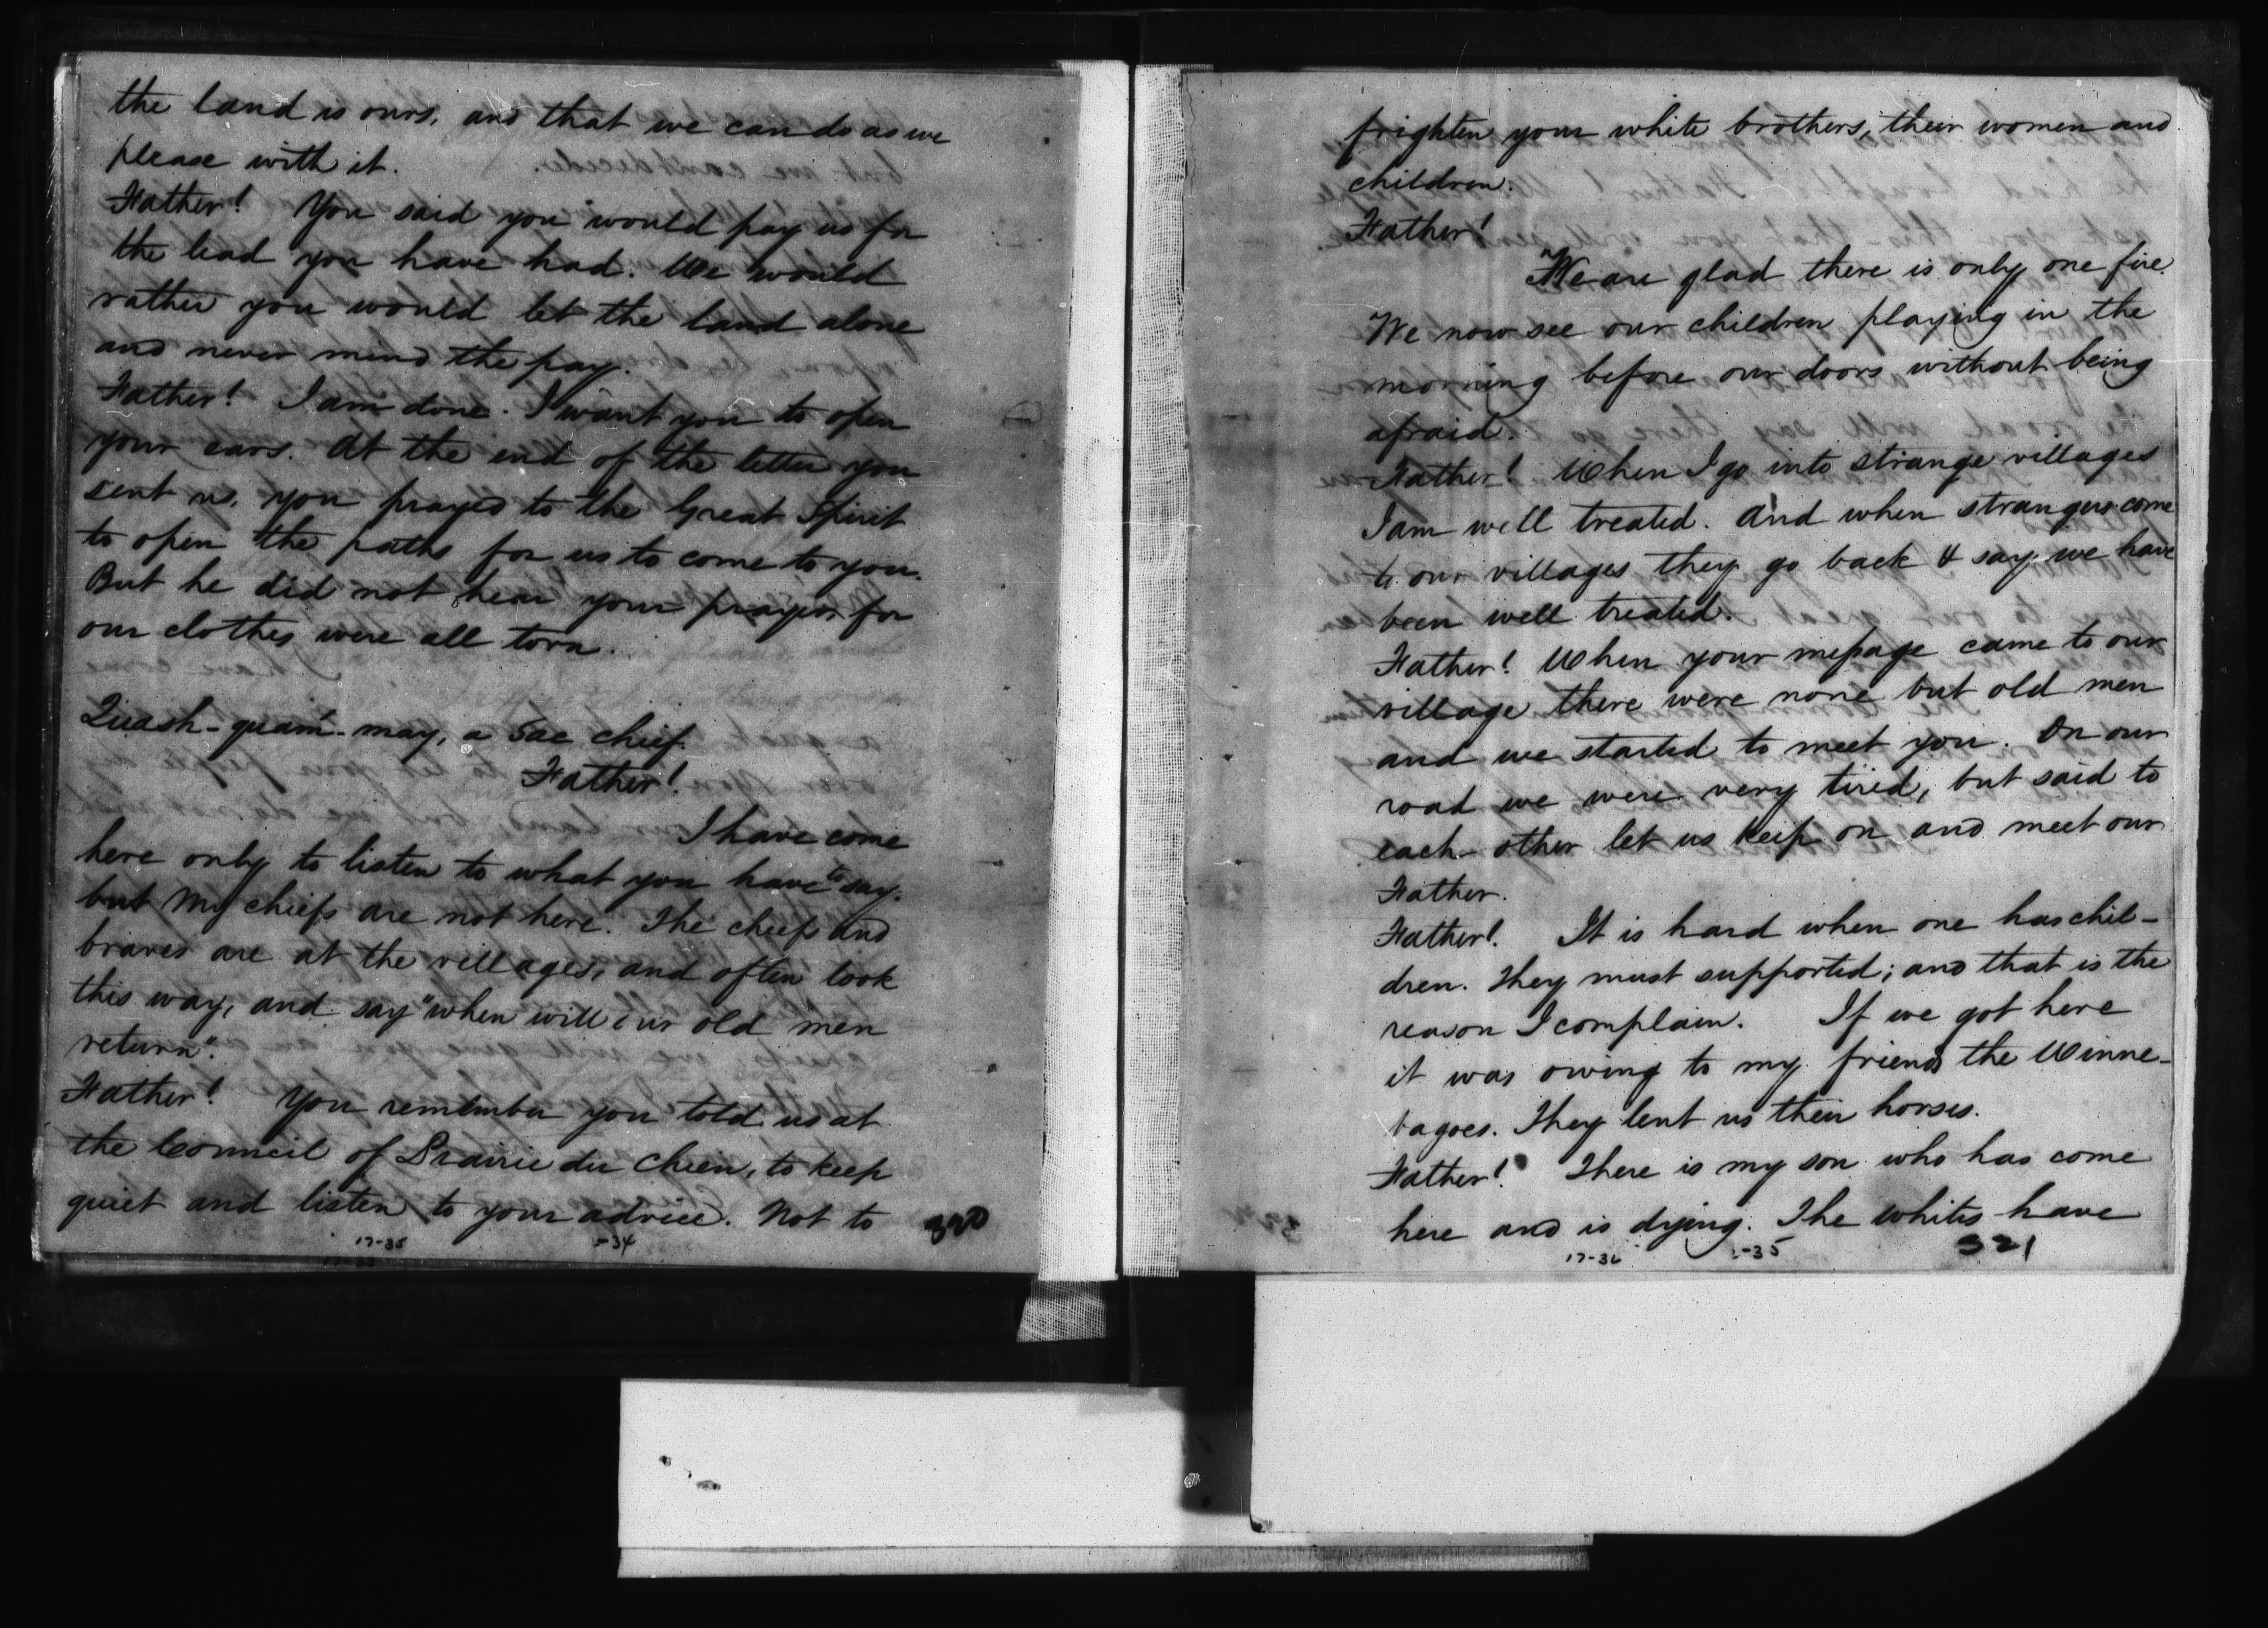 the land is ours, and that we can do as we
please with it.
Father! You said you would pay us for
the lead you have had. We would
rather you would let the land alone
and never mind the pay.
Father! I am done. I want you to open
your ears. At the end of the letter you
sent us, you prayed to the Great Spirit
to open the paths for us to come to you.
But he did not hear your prayer for
our clothes were all torn.
Quash-quam-may, a Sac chief.
Father!
I have come
here only to listen to what you have to say.
but my chiefs are not here. The chiefs and
braves are at the villages, and often look
this way, and say "when will our old men
return".
Father! You remember you told us at
the Council of Prairie du Chien, to keep
quiet and listen to your advice. Not to
320
17-35 -34
frighten your white brothers, their women and
children.
Father!
We are glad there is only one fire.
We now see our children playing in the
morning before our doors without being
afraid.
Father! When I go into strange villages
I am well treated. And when strangers come
to our villages they go back & say we have
been well treated.
Father! When your message came to our
village there were none but old men
and we started to meet you. On our
road we were very tired, but said to
each other let us keep on and meet our
Father.
Father! It is hard when one has chil-
dren. They must supported; and that is the
reason I complain. If we got here
it was owing to my friends the Winne-
bagoes. They lent us their horses.
Father! There is my son who has come
here and is dying. The whites have
321
17-36 -35